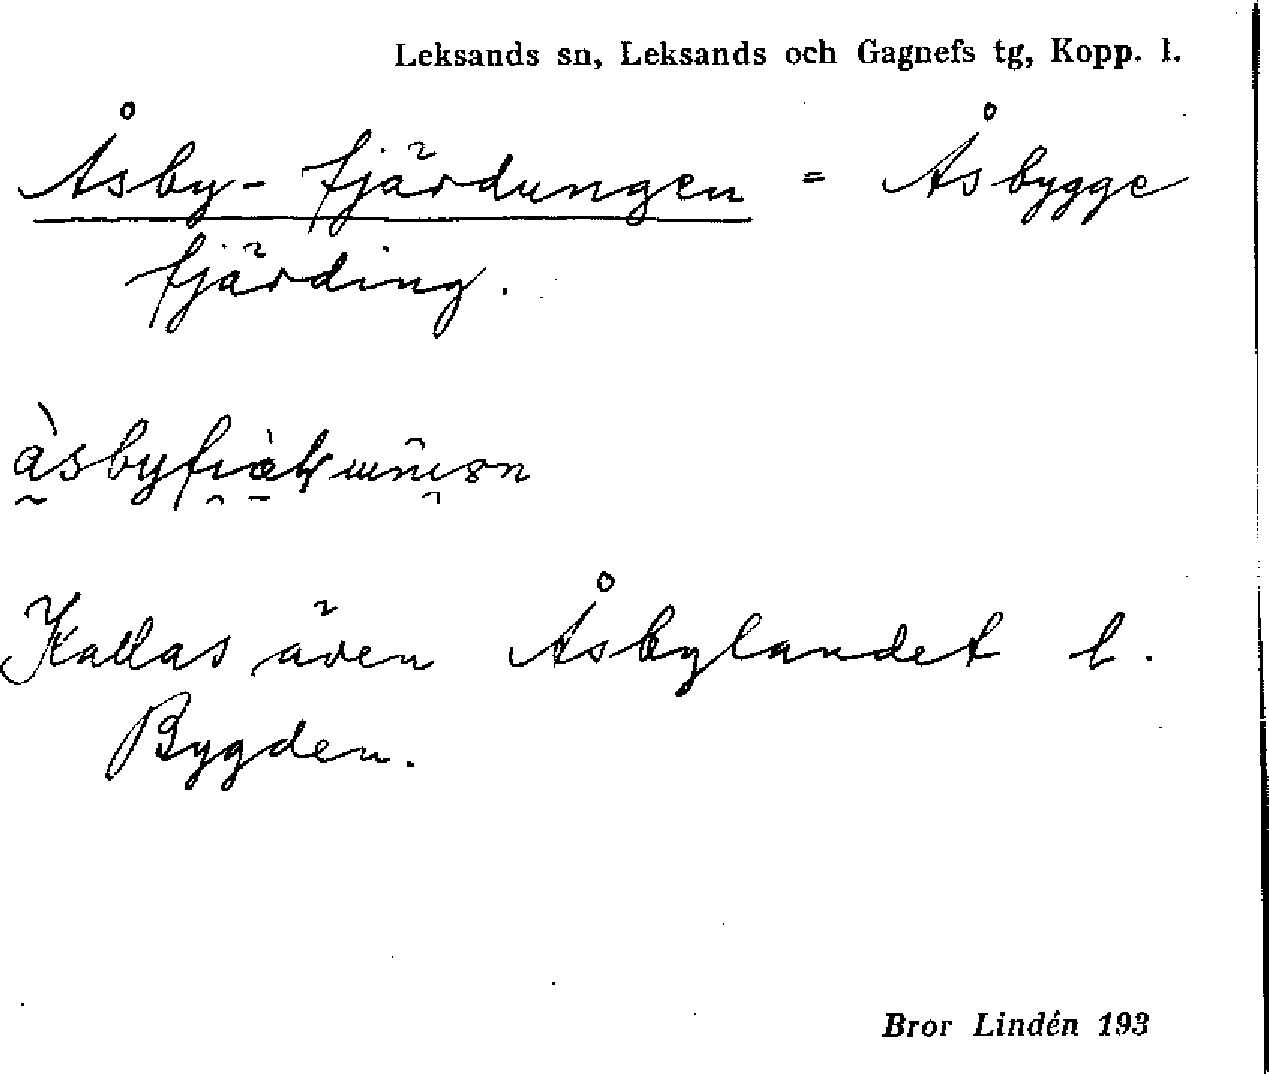 Leksands sn, Leksands och Gagnefs tg, Kopp. l.
Åsby-fjärdungen = Åsbygge
fjärding.
Kallas även Åsbylandet l.
Bygden.
Bror Lindén 193